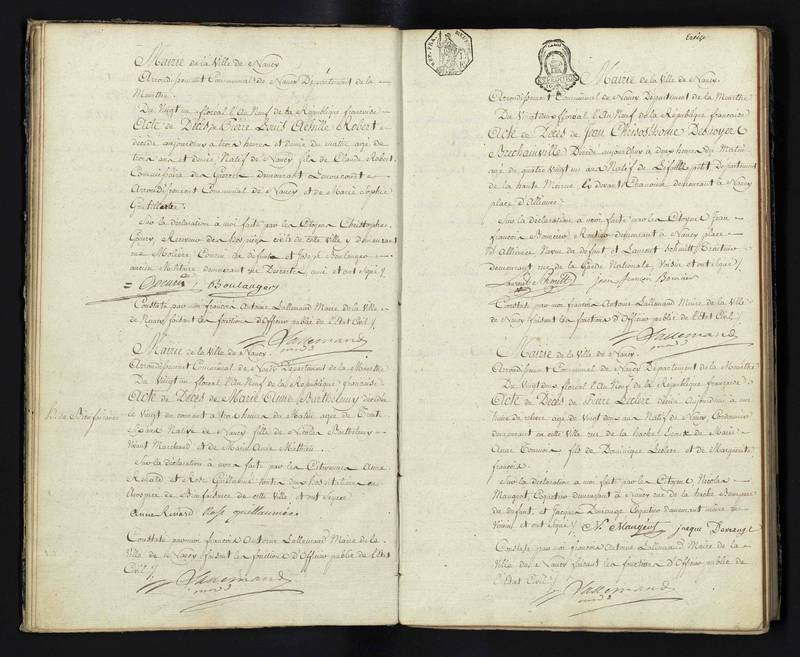 Mairie de la Ville de Nancy
Arrondissement Communal de Nancy Département de la
Meurthe.
Du Vingt un floreal l'An Neuf de la République française
Acte de Décès de Pierre Louis Achille Robert
décédé aujourdhuy a trois heures et demie du matin agé de
trois ans et demie Natif de Nancy fils de Claude Robert
demeurant
Arrondissement Communal de Nancy et de Marie Sophie
Sur la déclaration à moi faite par les Citoyens Christophe
Receveur des hospices civils de cette Ville y demeurant
rue Moliere, Cousin du défunt et Joseph Boulanger
ancien Militaire demeurant rue qui ont signé
Boulanger
Constaté par moi françois Antoine Lallemand Maire de la Ville
de Nancy faisant les fonctions d'Officier public de l'Etat Civil
Lallemand
Mairie de la Ville de Nancy
Arrondissement Communal de Nancy Département de la Meurthe
Du Vingt un floreal l'An Neuf de la République française
Acte de Décès de Marie Anne Barthelemy décédée
le Vingt du courant a onze heures du Matin agée de trente
Native de Nancy fille de Nicolas Barthelemy
Vivant Marchand et de Marie Anne Mathieu
Sur la déclaration à moi faite par les Citoyennes Anne
Renard et Rose Guillaumé toutes deux hospitalieres
hospice de Bienfaisance de cette Ville, et ont signé
Anne Renard Rose guillaumée
Constaté par moi françois Antoine Lallemand Maire de la
Ville de Nancy faisant les fonctions d'Officier public de l'Etat
Civil
Lallemand
Mairie de la Ville de Nancy
Arrondissement Communal de Nancy Département de la Meurthe
Du Vingt deux floreal l'An Neuf de la République française
Acte de Décès de Jean Chrisosthome Debuoyer
Bouchainville Décédé aujourdhuy a deux heures du Matin
agé de quatre vingt un ans Natif de Département
de la haute Marne Chanoine demeurant a Nancy
place d'Alliance
Sur la déclaration à moi faite par les Citoyens Jean
françois demeurant a Nancy place
d'Alliance Neveu du defunt et Laurent Schmitt
demeurant rue de la Garde Nationale Voisin et ont signé
Laurent Schmitt Jean françois
Constaté par moi françois Antoine Lallemand Maire de la Ville
de Nancy faisant les fonctions d'Officier public de l'Etat Civil
Lallemand
Mairie de la Ville de Nancy
Arrondissement Communal de Nancy Département de la Meurthe
Du Vingt deux floreal l'An Neuf de la République française
Acte de Décès de Pierre Leclerc décédé aujourdhui a une
heure de relevé agé de vingt deux ans Natif de Nancy Cordonnier
demeurant en cette Ville rue de la hache Epoux de Marie
Anne fils de Dominique Leclerc et de Marguerite
françois
Sur la déclaration a moi faite par les Citoyens Nicolas
Maugeot, demeurant à Nancy rue de la hache
du defunt, et Jacques demeurant même rue
Voisin et ont signé N. Maugeot jacque
Constaté par moi françois Antoine Lallemand Maire de la
Ville de Nancy faisant les fonctions d'Officier public de
l'Etat Civil
Lallemand